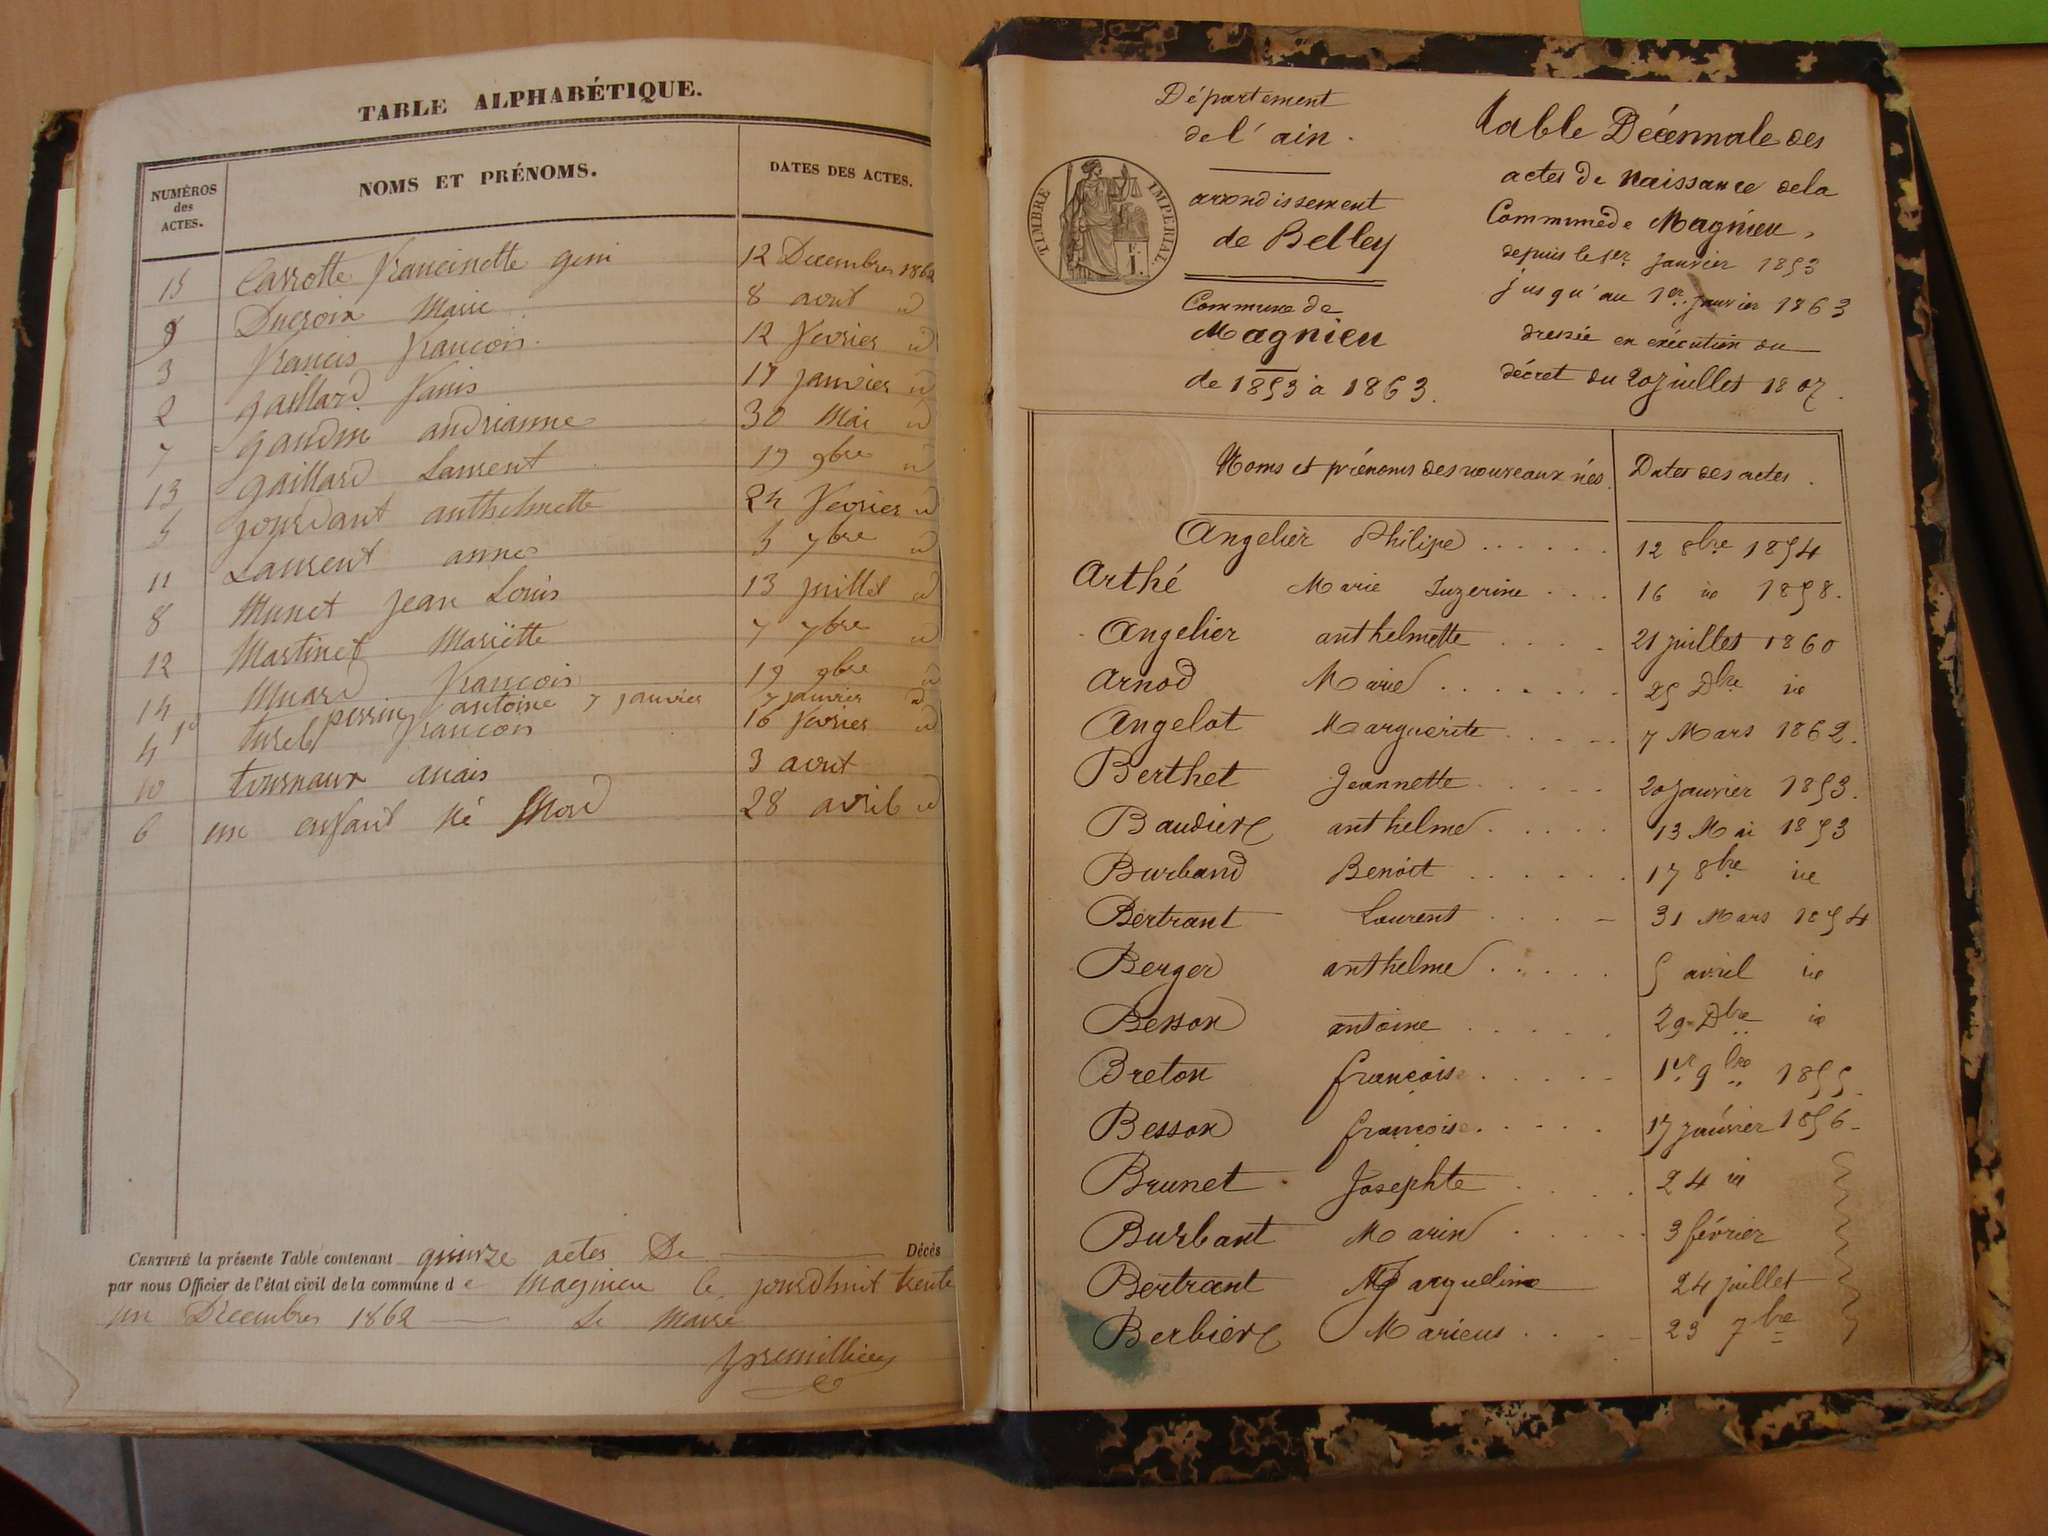 TABLE ALPHABÉTIQUE.
NUMÉROS des ACTES. NOMS ET PRÉNOMS. DATES DES ACTES.
15 Carrotte francinette 12 Decembre 1862
9 Ducroix Marie 8 avril id
3 francis francois 12 fevrier id
2 gaillard 17 janvier id
7 gaudin andrianne 30 Mai id
13 gaillard Laurent 19 9bre id
5 jourdant anthelmette 24 fevrier id
11 Laurent anne 5 7bre id
8 Munet jean Louis 13 juillet id
12 Martinet Mariëtte 7 7bre id
14 Muard francois 19 9bre id
1er perrin antoine 7 janvier 7 janvier id
4 turel francois 16 fevrier id
10 tournaux anais 3 aout
6 un enfant né Mort 28 avril id
CERTIFIÉ la présente Table contenant quinze actes De Décès
par nous Officier de l'état civil de la commune de Magnieu le jourdhuit trente
un Decembre 1862 Le Maire
Département
de l'ain.
TIMBRE IMPERIAL.
arrondissement
de Belley
Commune de
Magnieu
de 1853 à 1863.
table Décennale des
actes de Naissance de la
Commune de Magnieu,
depuis le 1er janvier 1853
jusqu'au 1er janvier 1863
dressée en exécution du
décret du 20 juillet 1807.
Noms et prénoms des nouveaux nés. Dates des actes.
Angelier Philipe ...... 12 8bre 1854
Arthé Marie Luzerine ... 16 id 1858.
Angelier anthelmette .... 21 juillet 1860
Arnod Marie ....... 25 Dbre id
Angelot Marguerite ..... 7 Mars 1862.
Berthet Jeannette ..... 20 janvier 1853.
Baudiere anthelme ..... 13 Mai 1853
Burband Benoit ...... 17 8bre id
Bertrant Laurent .... 31 Mars 1854
Berger anthelme ..... 5 avril id
Besson antoine ..... 29 Dbre id
Breton françoise ..... 1er 9bre 1855
Besson françoise ..... 17 janvier 1856
Brunet Josephte .... 24 id
Burbant Marie ..... 3 février
Bertrant Margueline 24 juillet
Berbiere Marieus .... 23 7bre